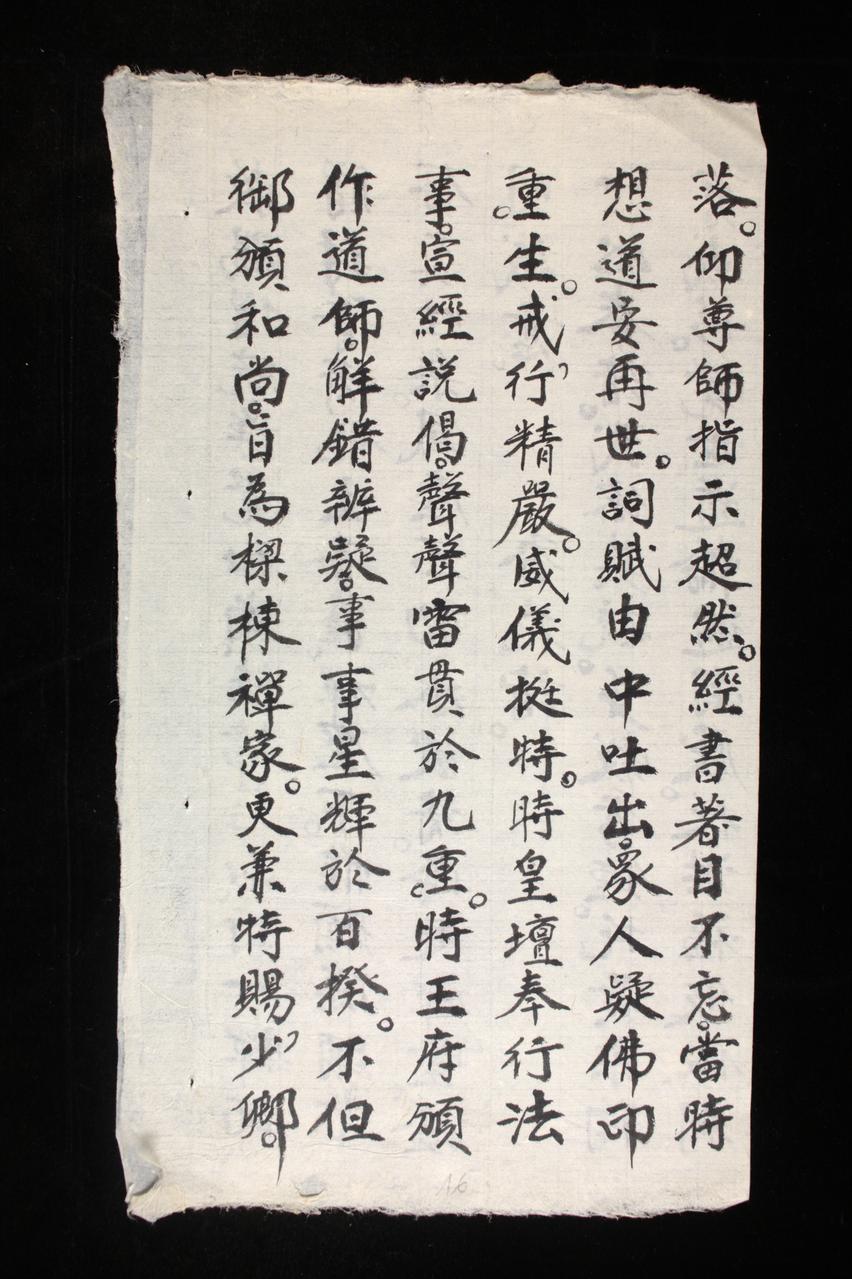 落。仰尊師指示超然。經書著目不忘。當時
想道安再世。詞賦由中吐出。眾人疑佛印
重生。戒行精嚴。威儀挺特。時皇壇奉行法
事。宣經說偈。聲聲雷貫於九重。時王府頒
作道師。解錯辨疑。事事星輝於百揆。不但
御頒和尚。旨為樑棟禪家。更兼特賜少卿。
16